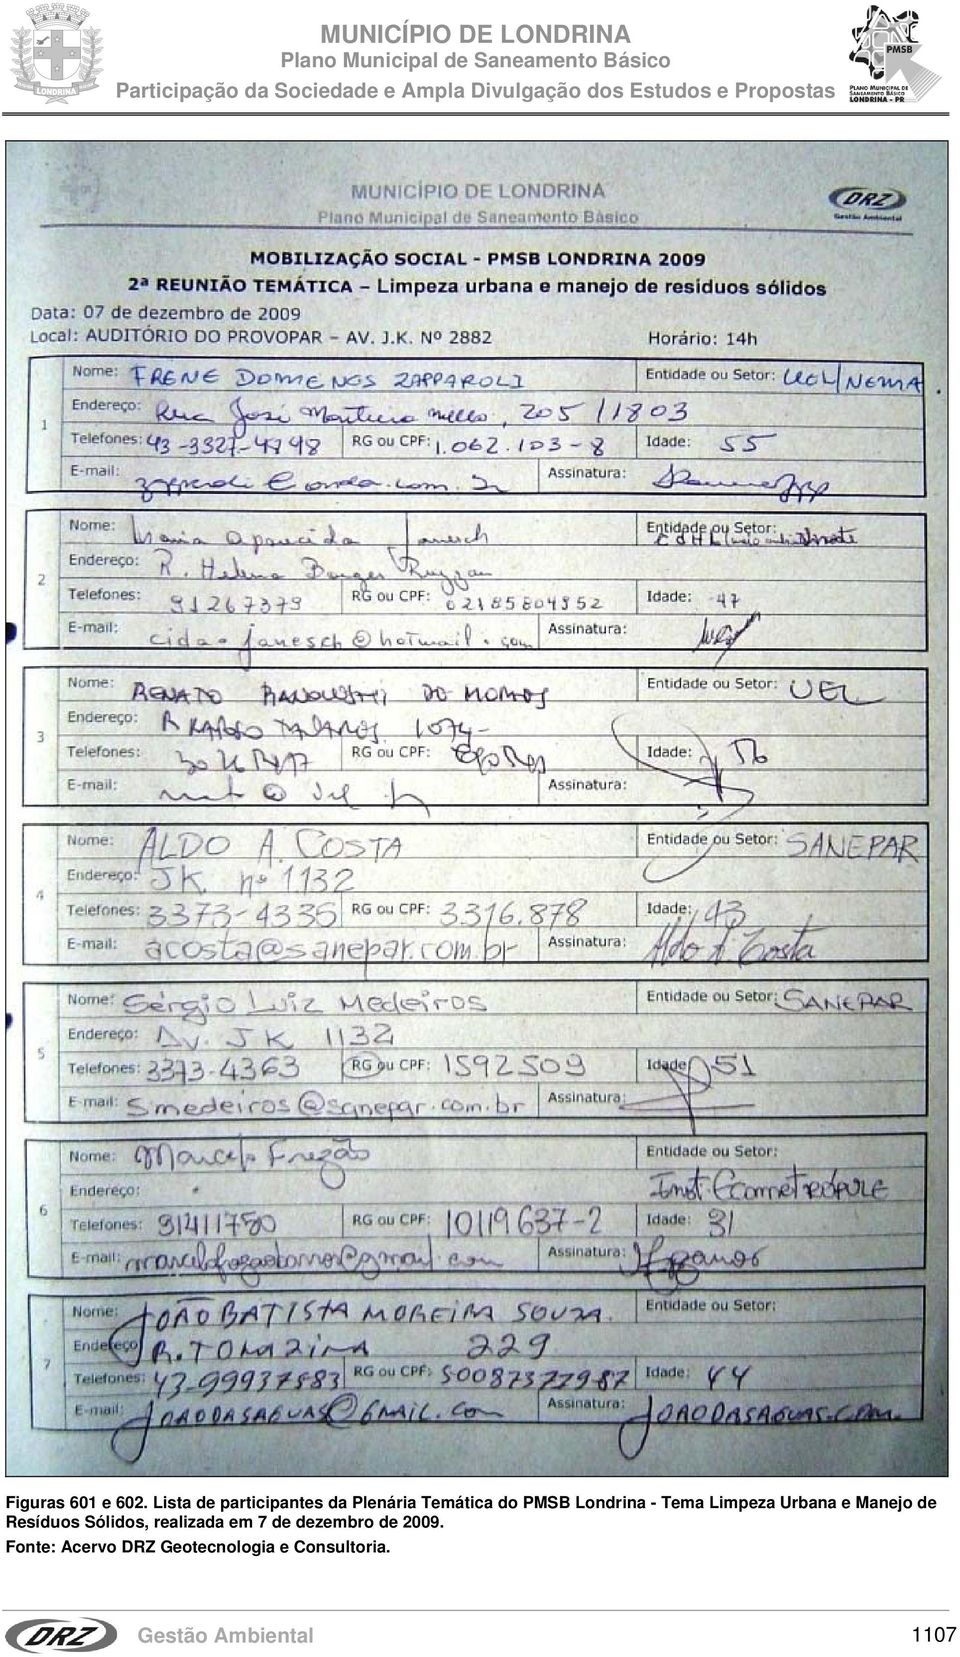 MUNICÍPIO DE LONDRINA
Plano Municipal de Saneamento Básico
Participação da Sociedade e Ampla Divulgação dos Estudos e Propostas
LONDRINA
PMSB
PLANO MUNICIPAL DE
SANEAMENTO BÁSICO
LONDRINA - PR
MUNICÍPIO DE LONDRINA
Plano Municipal de Saneamento Básico
DRZ
Gestão Ambiental
MOBILIZAÇÃO SOCIAL - PMSB LONDRINA 2009
2ª REUNIÃO TEMÁTICA – Limpeza urbana e manejo de resíduos sólidos
Data: 07 de dezembro de 2009
Local: AUDITÓRIO DO PROVOPAR – AV. J.K. Nº 2882 Horário: 14h
1
Nome: IRENE DOMENES ZAPPAROLI Entidade ou Setor: UEL/NEMA
Endereço: Rua José Monteiro Mello, 205/1803
Telefones: 43-3327-4798 RG ou CPF: 1.062.103-8 Idade: 55
E-mail: Assinatura:
2
Nome: Maria Aparecida Janesch Entidade ou Setor:
Endereço: R. Helena Borges
Telefones: 91267379 RG ou CPF: 02185804952 Idade: 47
E-mail: cida-janesch@hotmail.com Assinatura:
3
Nome: RENATO Entidade ou Setor: UEL
Endereço: R 1074
Telefones: RG ou CPF: Idade: 56
E-mail: Assinatura:
4
Nome: ALDO A. COSTA Entidade ou Setor: SANEPAR
Endereço: JK. nº 1132
Telefones: 3373-4335 RG ou CPF: 3.316.878 Idade: 43
E-mail: acosta@sanepar.com.br Assinatura: Aldo A Costa
5
Nome: Sérgio Luiz Medeiros Entidade ou Setor: SANEPAR
Endereço: Av. JK 1132
Telefones: 3373-4363 RG ou CPF: 1592509 Idade: 51
E-mail: smedeiros@sanepar.com.br Assinatura:
6
Nome: Marcelo Frezão Entidade ou Setor:
Endereço: Inst. Ecometrópole
Telefones: 91411750 RG ou CPF: 10119637-2 Idade: 31
E-mail: Assinatura:
7
Nome: JOÃO BATISTA MOREIRA SOUZA. Entidade ou Setor:
Endereço: R. TOMAZINA 229
Telefones: 43-99937583 RG ou CPF: 50087377987 Idade: 44
E-mail: JOAODASAGUAS@GMAIL.COM Assinatura: JOAODASAGUAS.COM.
Figuras 601 e 602. Lista de participantes da Plenária Temática do PMSB Londrina - Tema Limpeza Urbana e Manejo de
Resíduos Sólidos, realizada em 7 de dezembro de 2009.
Fonte: Acervo DRZ Geotecnologia e Consultoria.
DRZ Gestão Ambiental 1107